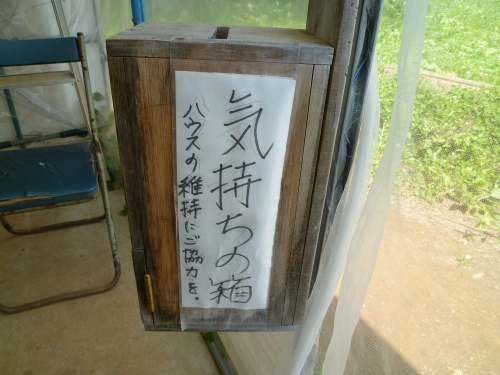 気持ちの箱
ハウスの維持にご協力を。